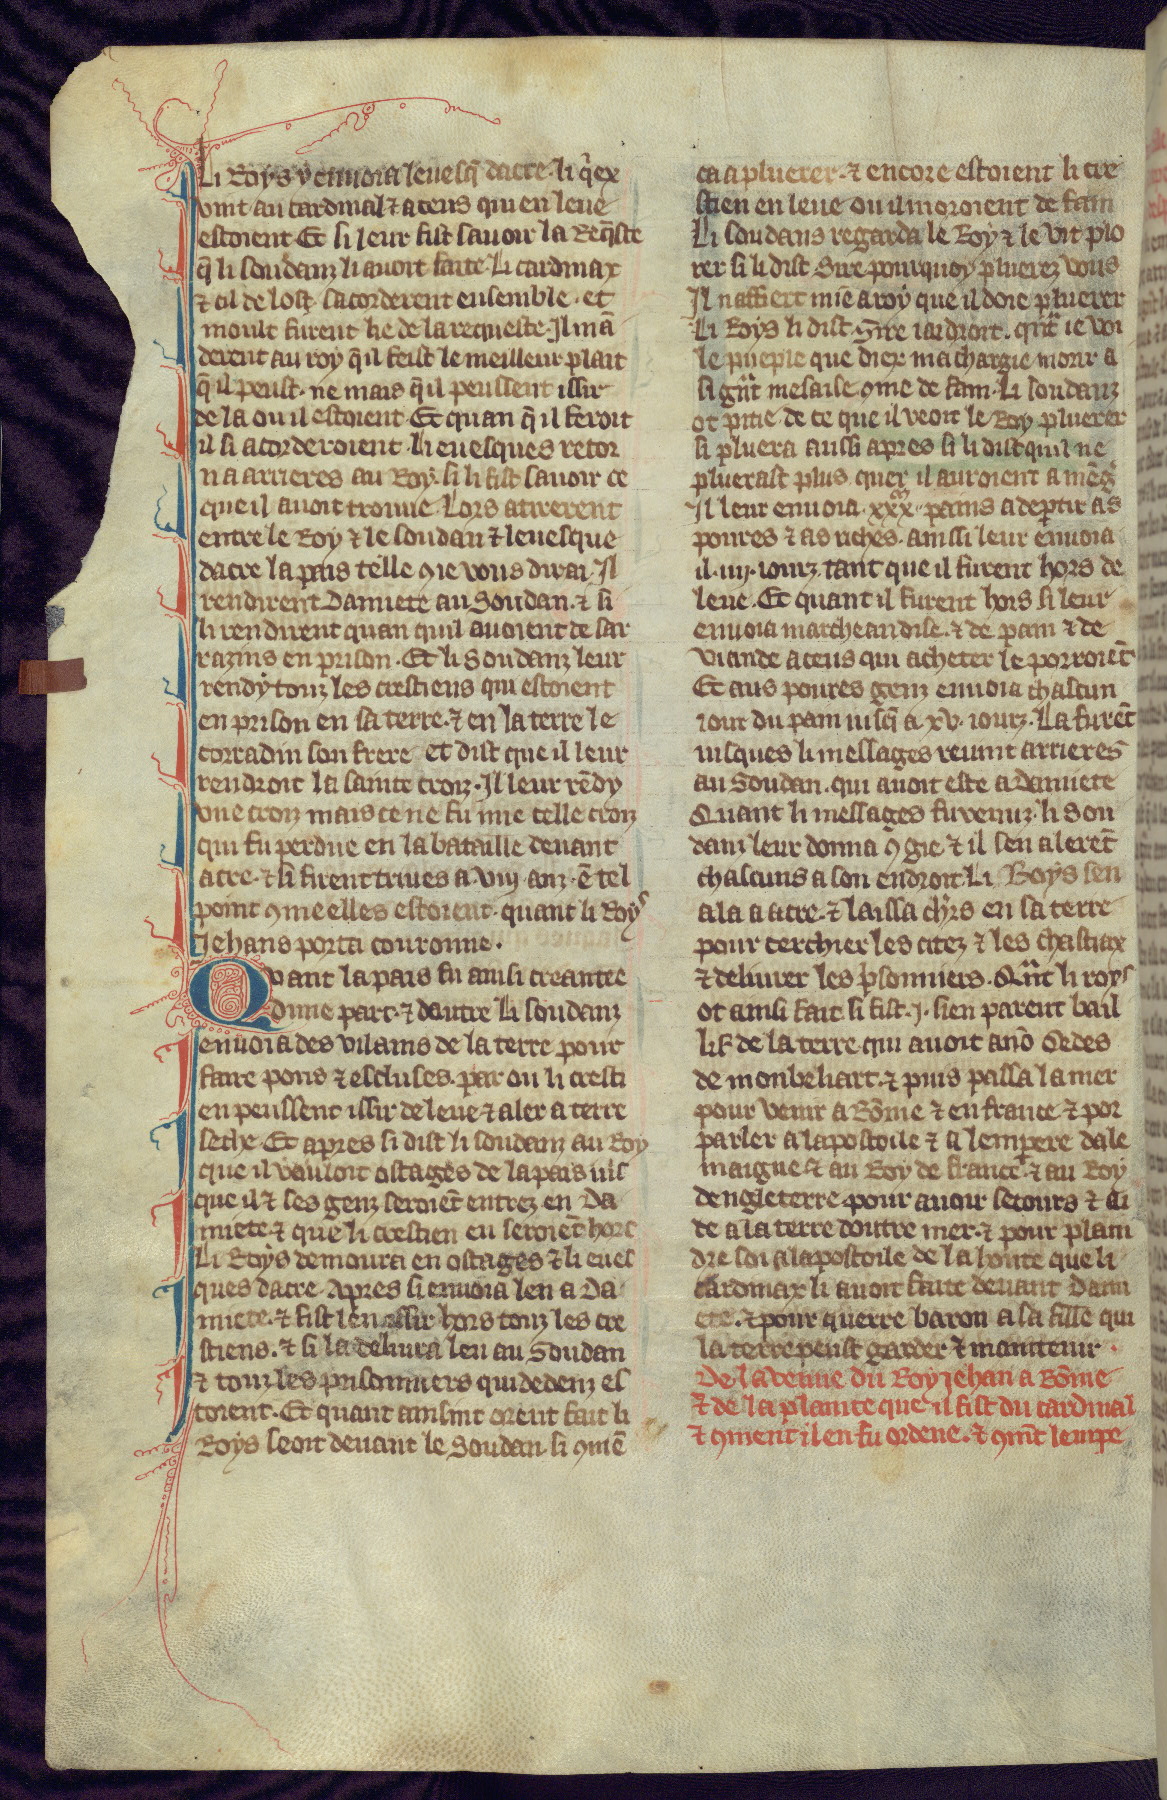 Li Roys y enuoia leuesq̄ dacre. li q̄ex
vint au cardinal ⁊ a ceus qui en leue
estoient Et si leur fist sauoir la Reqͥste
q̄ li soudanz li auoit faite. Li cardinax
⁊ cil de lost sacorderent ensemble. et
moult furent lie de la requeste. Il mā
derent au roy q̄ il feist le meilleur plait
q̄ il peust. ne mais q̄ il peussent issir
de la ou il estoient Et quan q̄ il feroit
il si acorderoient. li euesques retor
na arrieres au Roy. si li fist sauoir ce
que il auoit trouue. Lors atirerent
entre le Roy ⁊ le soudan ⁊ leuesque
dacre la pais telle 9me vous dirai. Il
rendirent Damiete au Soudan. ⁊ si
li rendirent quan quil auoient de sar
razins en prison. Et li Soudanz leur
rendy touz les crestiens qui estoient
en prison en sa terre. ⁊ en la terre le
corradin son frere. et dist que il leur
rendroit la sainte croiz. Il leur rēdy
vne croiz mais ce ne fu mie celle croiz
qui fu perdue en la bataille deuant
acre. ⁊ si firent triues a. viij. anz. ē tel
point 9me elles estoient. quant li Roys
Jehans porta couronne.
Quant la pais fu ainsi creantee
dune part. ⁊ dautre Li soudanz
enuoia des vilains de la terre pour
faire pons ⁊ escluses. par ou li cresti
en peussent issir de leue ⁊ aler a terre
seche. Et apres si dist li soudanz au Roy
que il vouloit ostages de la pais iusˈ
que il ⁊ ses genz seroiēt entrez en Da
miete. ⁊ que li crestien en seroiēt hors
Li Roys demoura en ostages ⁊ li eues
ques dacre. Apres si enuoia len a Da
miete. ⁊ fist len issir hors touz les cre
stiens. ⁊ si la deliura len au Soudan
⁊ touz les prisonniers qui dedenz es
toient. Et quant ainsint orent fait li
Roys seoit deuant le Soudan. si 9mē
ca a pluerer. ⁊ encore estoient li cre
stien en leue ou il moroient de fain
Li soudans regarda le Roy ⁊ le vit plo
rer si li dist Sire pourquoy pluerez vous
Il naffiert mie a roy que il doie pluerer
Li Roys li dist. Sire iai droit. qn̄t ie voi
le pueple que diex ma chargie morir a
si gn̄t mesaise 9me de fain. Li soudanz
ot pitie de ce que il veoit le Roy pluerer
si pluera aussi apres si li dist quil ne
plueraast plus. quer il auroient a mēgͥ
Il leur enuoia. xxxᵐ. pains a deꝑtir as
poures ⁊ as riches. ainssi leur enuoia
il. iiij. iourz. tant que il furent hors de
leue. Et quant il furent hors si leur
enuoia marcheandise. ⁊ de pain ⁊ de
viande a ceus qui acheter le porroiēt
Et aus poures genz enuoia chascun
iour du pain iusq̄ a xv. iourz. La furēt
iusques li messages reuint arrieres
au Soudan. qui auoit este a Damiete
Quant li messages fu venuz. li Sou
danz leur donna 9gie ⁊ il sen alerēt
chascuns a son endroit. Li Roys sen
ala a acre. ⁊ laissa chͬrs en sa terre
pour cerchier les citez ⁊ les chastiax
⁊ deliurer les pͥsonniers. Qn̄t li roys
ot ainsi fait si fist. j. sien parent bail
lif de la terre. qui auoit anō Oedes
de monbeliart. ⁊ puis passa la mer
pour venir a Rōme ⁊ en france. ⁊ por
parler a lapostoile ⁊ a lempere dale
maigne. ⁊ au Roy de france. ⁊ au Roy
dengleterre. pour auoir secours ⁊ ai
de a la terre doutre mer. ⁊ pour plain
dre soi a lapostoile de la honte que li
cardinax li auoit faite deuant Dami
ete. ⁊ pour querre baron a sa fille qui
la terre peust garder ⁊ maintenir.
De la venue du Roy jehan a Rōme
⁊ de la plainte que il fist du cardinal
⁊ 9ment il en fu ordene. ⁊ 9mēt lempe